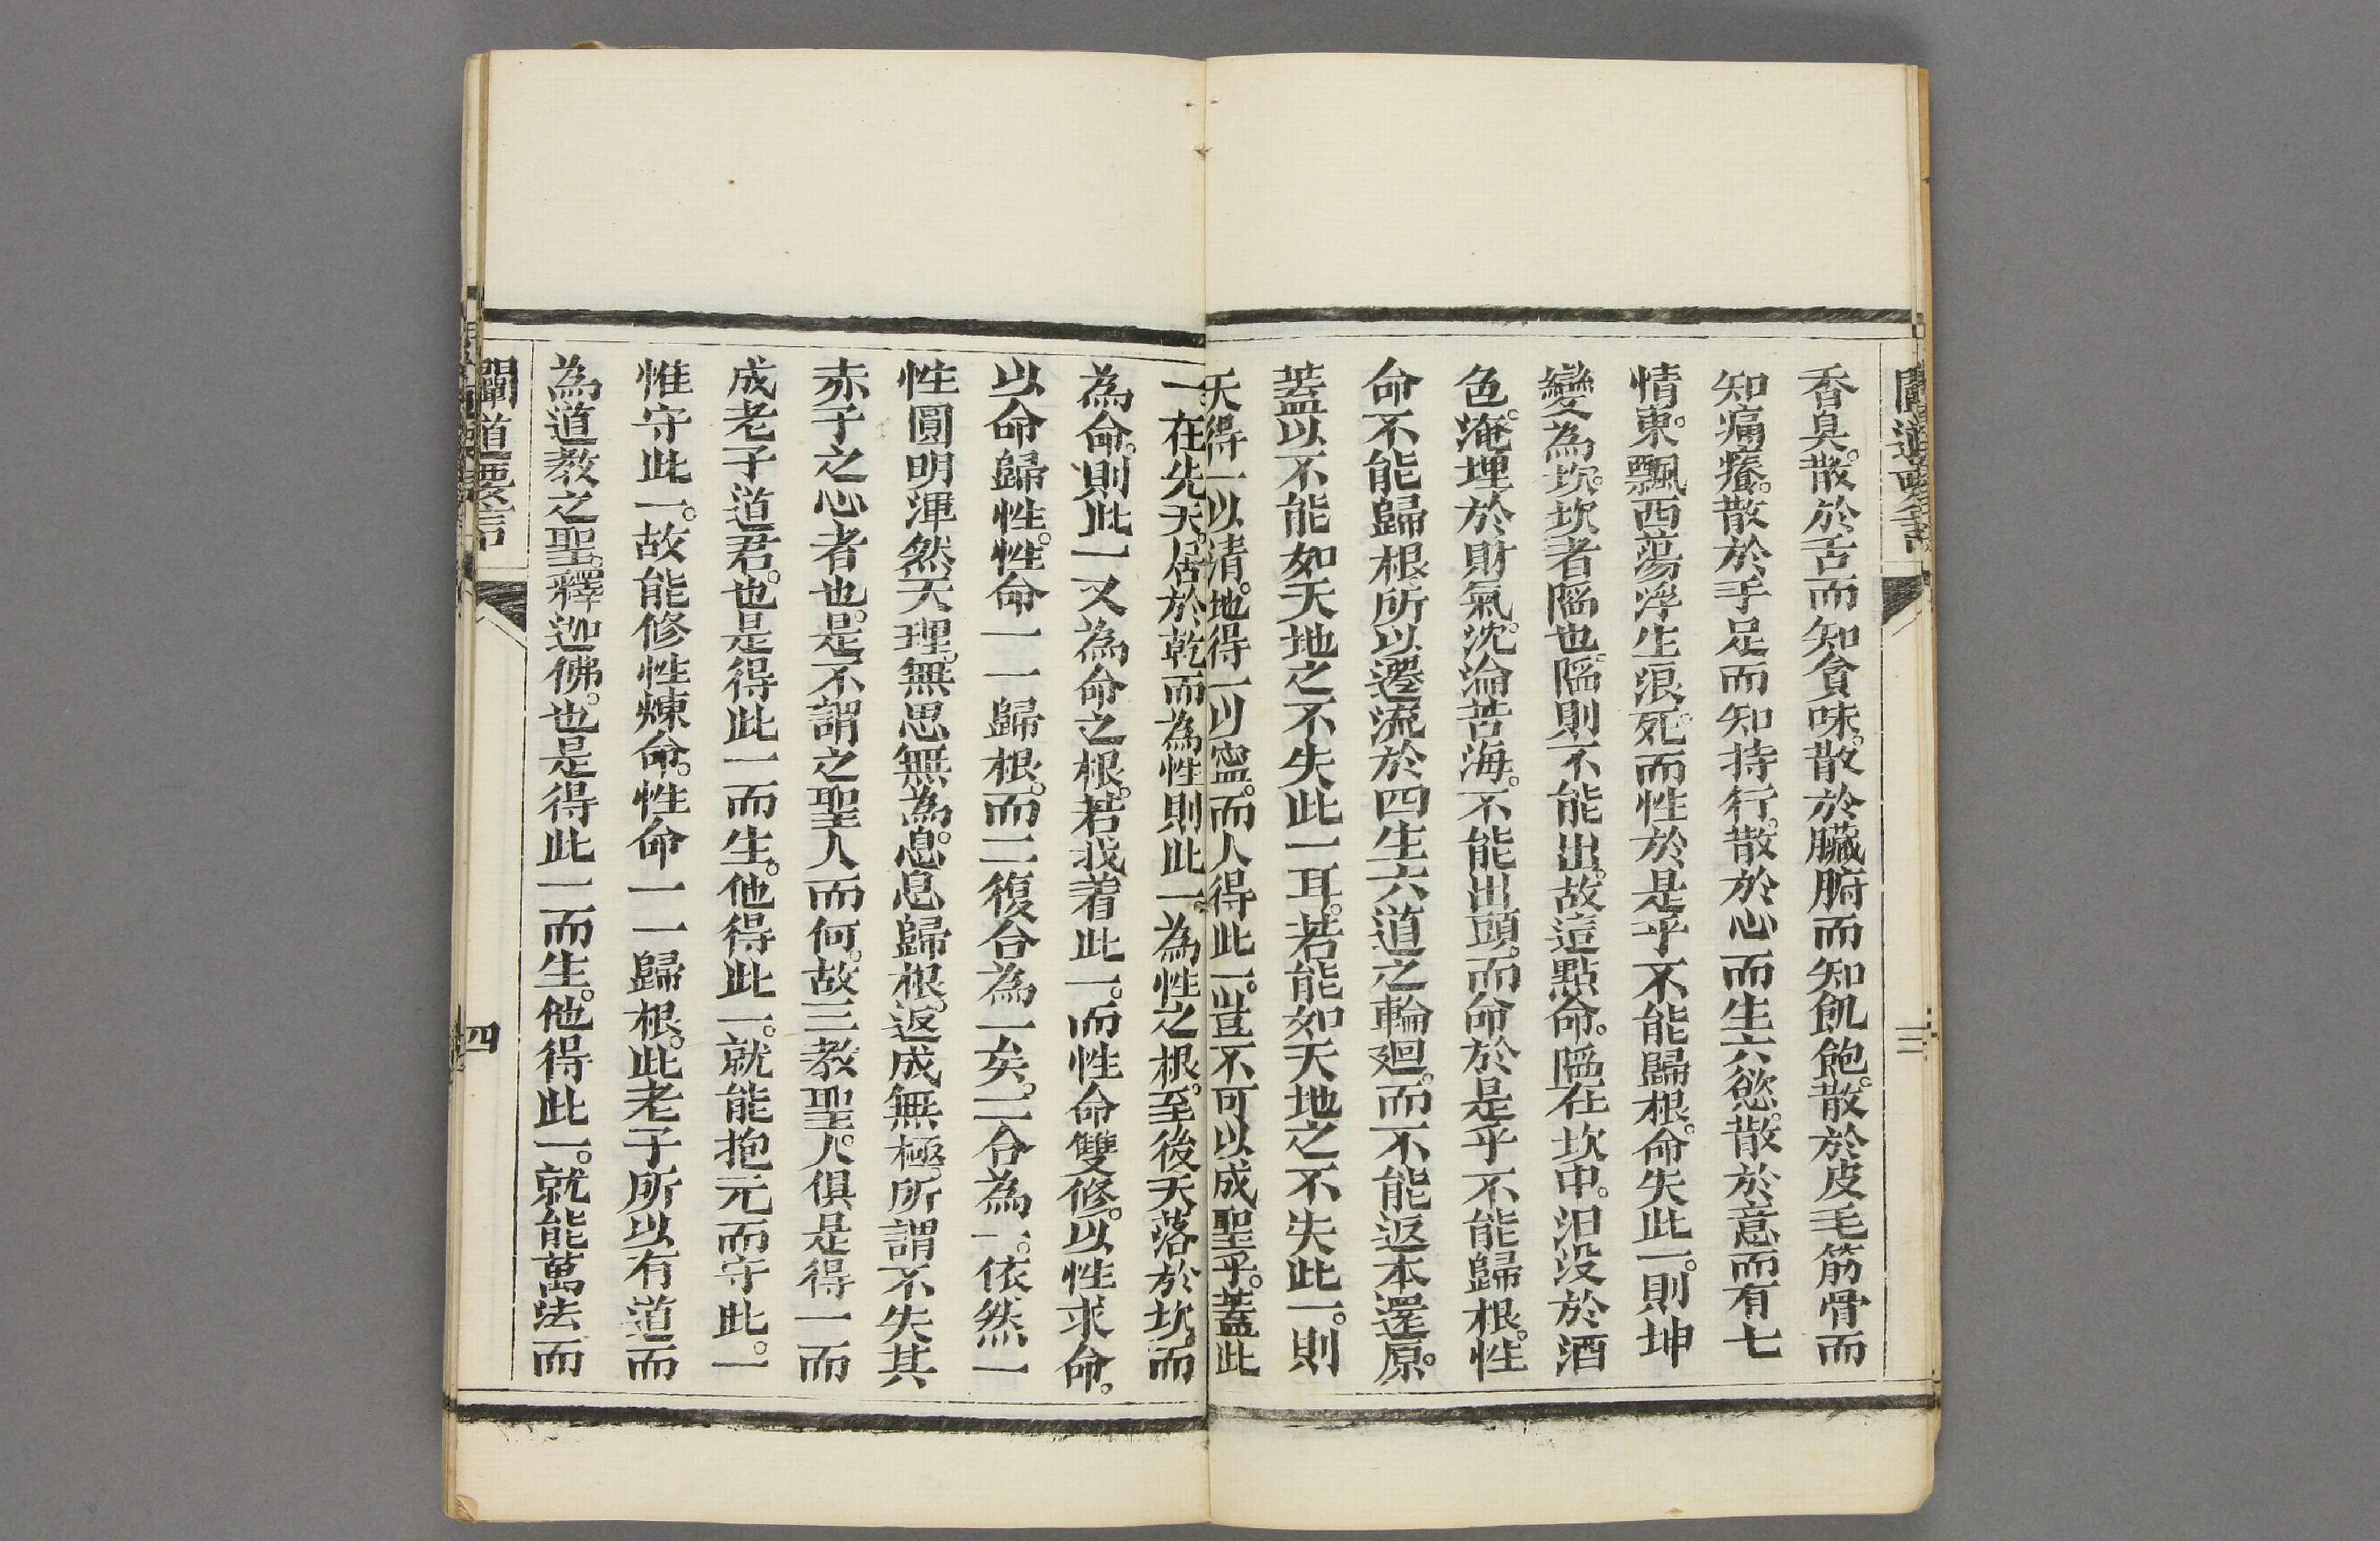 闡道要言
三
香臭。散於舌而知貪味。散於臟腑而知飢飽。散於皮毛筋骨而
知痛癢。散於手足而知持行。散於心而生六慾。散於意而有七
情。東飄西蕩浮生浪死。而性於是乎不能歸根。命失此一。則坤
變為坎。坎者陷也。陷則不能出。故這點命。陷在坎中。汩沒於酒
色。淹埋於財氣。沈淪苦海。不能出頭。而命於是乎不能歸根。性
命不能歸根。所以遷流於四生六道之輪廻。而不能返本還原。
蓋以不能如天地之不失此一耳。若能如天地之不失此一。則
天得一以清。地得一以寧。而人得此一。豈不可以成聖乎。蓋此
一在先天。居於乾而為性。則此一。為性之根。至後天落於坎。而
為命。則此一又為命之根。若我着此一。而性命雙修。以性求命。
以命歸性。性命一一歸根。而二復合為一矣。二合為一。依然一
性圓明渾然天理。無思無為。息息歸根。返成無極。所謂不失其
赤子之心者也。是不謂之聖人而何。故三教聖人。俱是得一而
成老子道君。也是得此一而生。他得此一。就能抱元而守此。一
惟守此一。故能修性煉命。性命一一歸根。此老子所以有道而
為道教之聖。釋迦佛。也是得此一而生。他得此一。就能萬法而
闡道要言
四